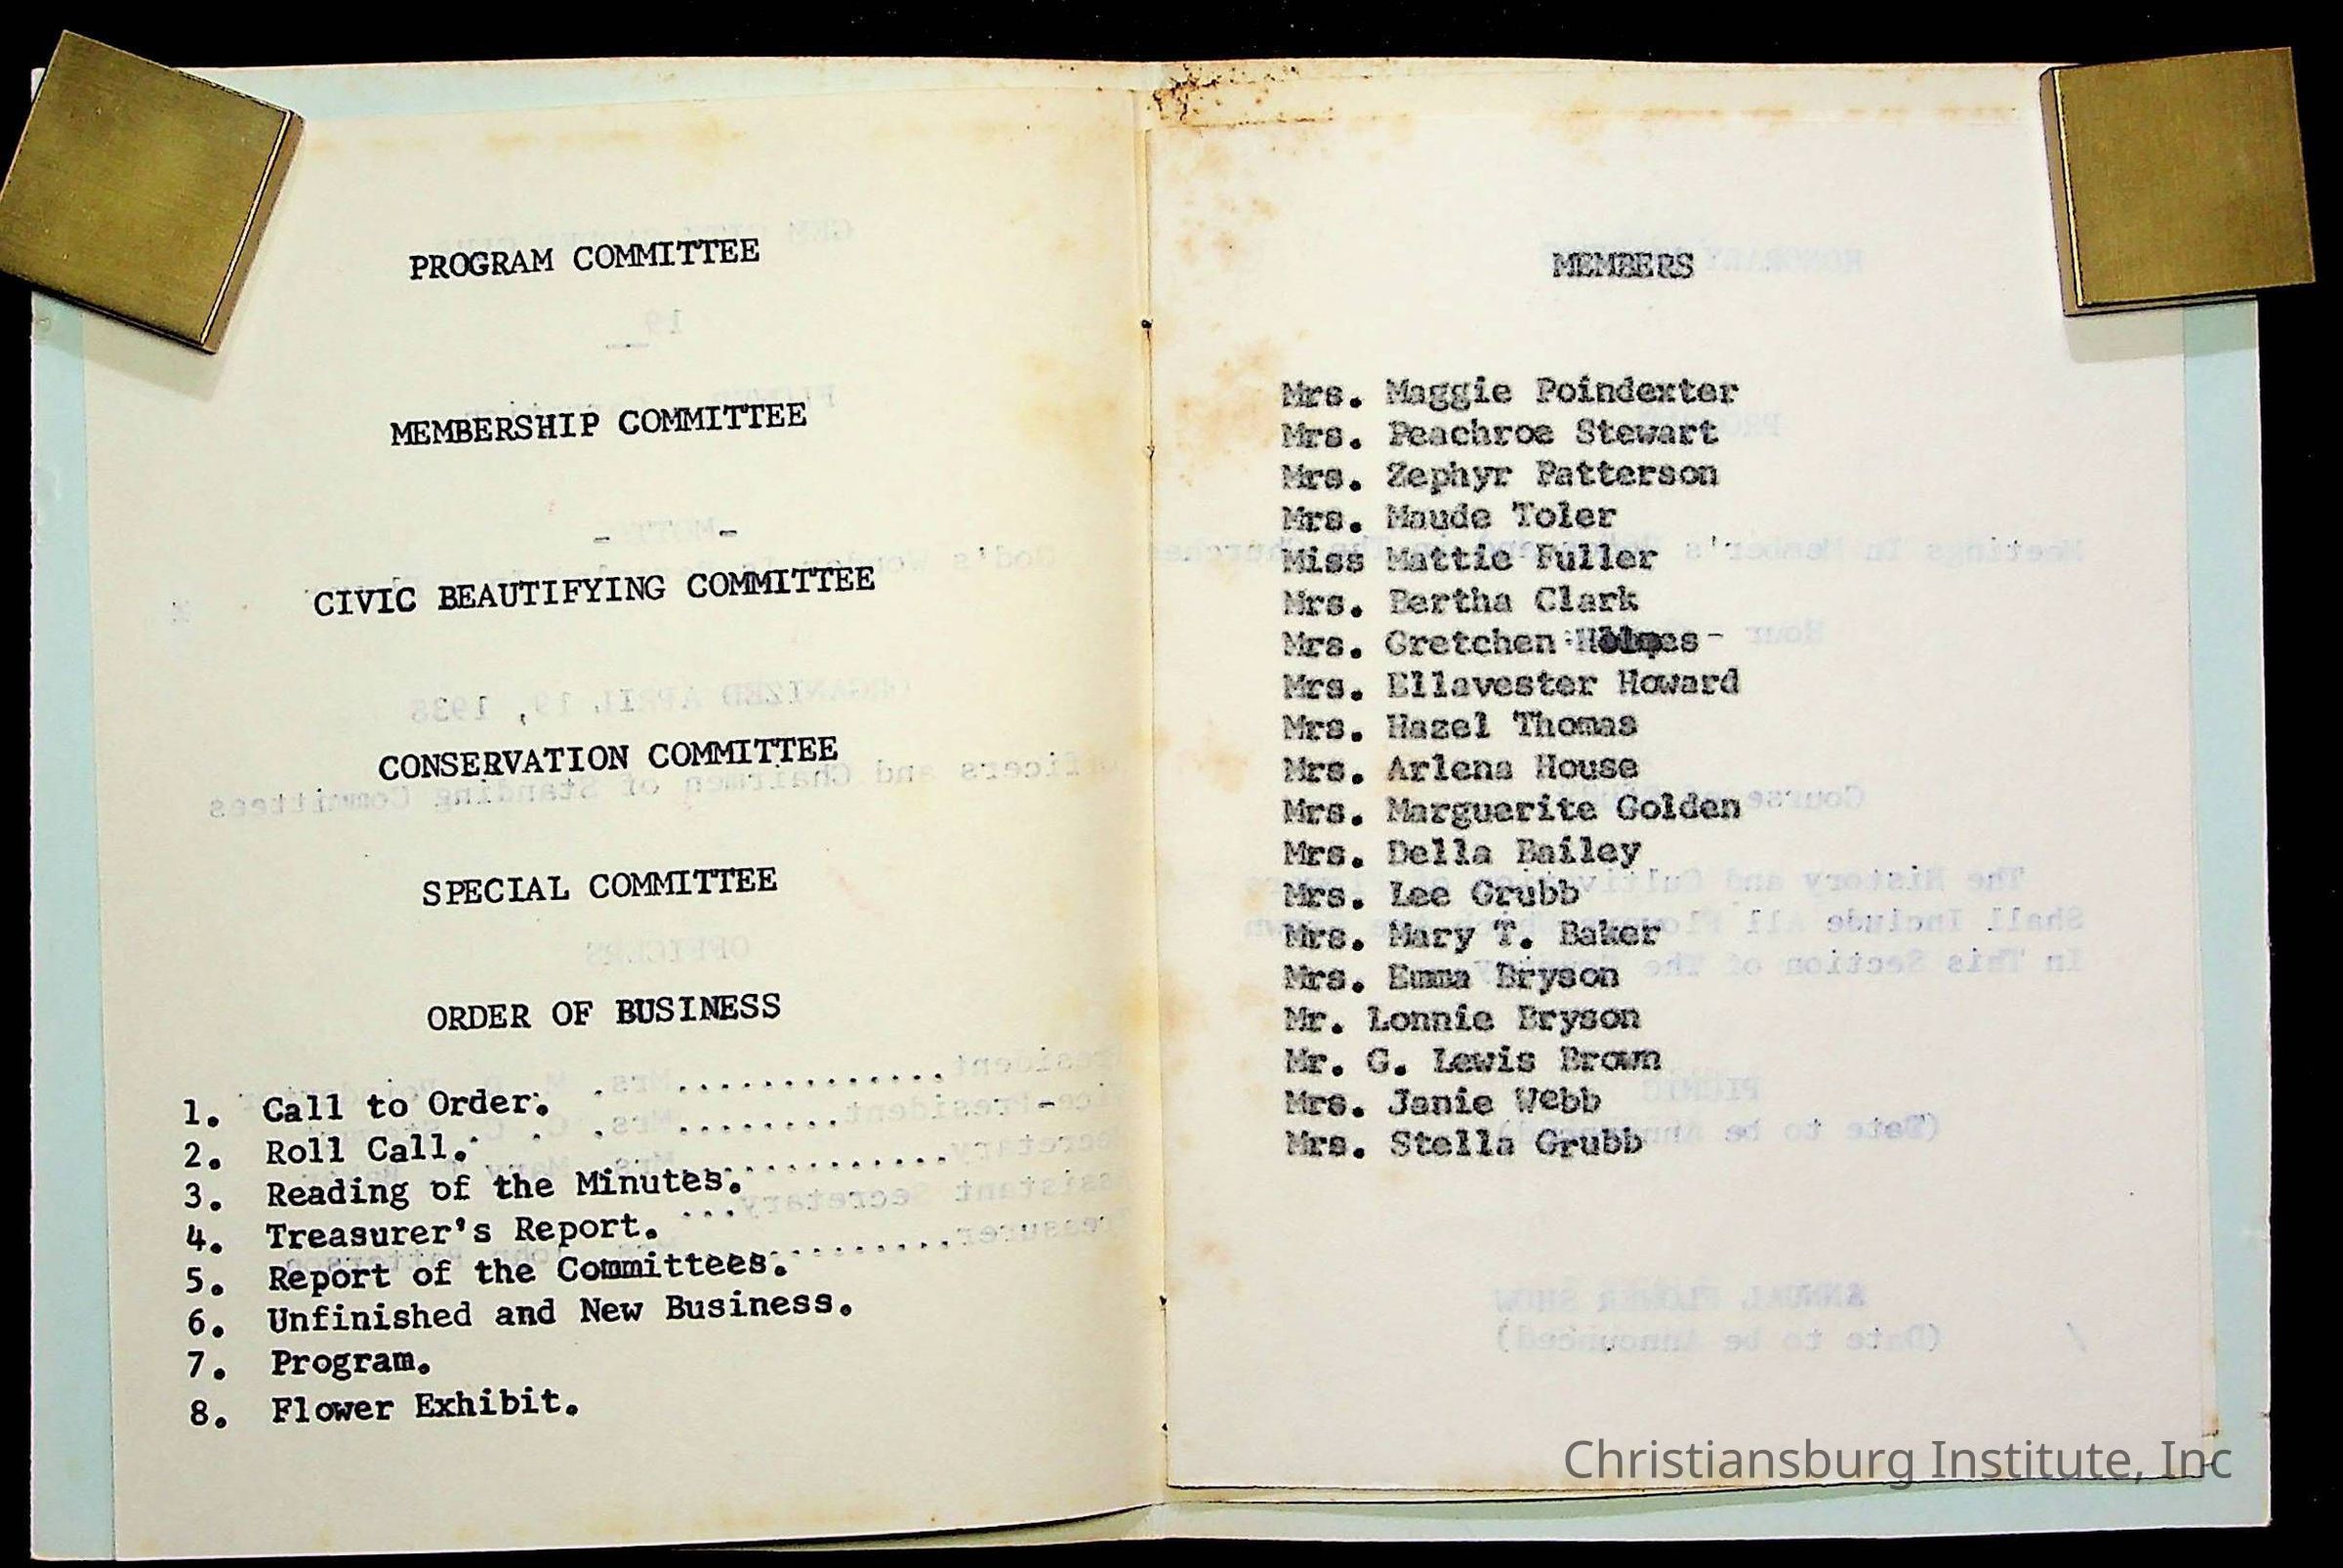 PROGRAM COMMITTEE
MEMBERSHIP COMMITTEE
CIVIC BEAUTIFYING COMMITTEE
CONSERVATION COMMITTEE
SPECIAL COMMITTEE
ORDER OF BUSINESS
1. Call to Order.
2. Roll Call.
3. Reading of the Minutes.
4. Treasurer's Report.
5. Report of the Committees.
6. Unfinished and New Business.
7. Program.
8. Flower Exhibit.
MEMBERS
Mrs. Maggie Poindexter
Mrs. Peachroe Stewart
Mrs. Zephyr Patterson
Mrs. Maude Toler
Miss Mattie Fuller
Mrs. Bertha Clark
Mrs. Gretchen
Mrs. Ellavester Howard
Mrs. Hazel Thomas
Mrs. Arlena House
Mrs. Marguerite Golden
Mrs. Della Bailey
Mrs. Lee Grubb
Mrs. Mary T. Baker
Mrs. Emma Bryson
Mr. Lonnie Bryson
Mr. G. Lewis Brown
Mrs. Janie Webb
Mrs. Stella Grubb
Christiansburg Institute, Inc